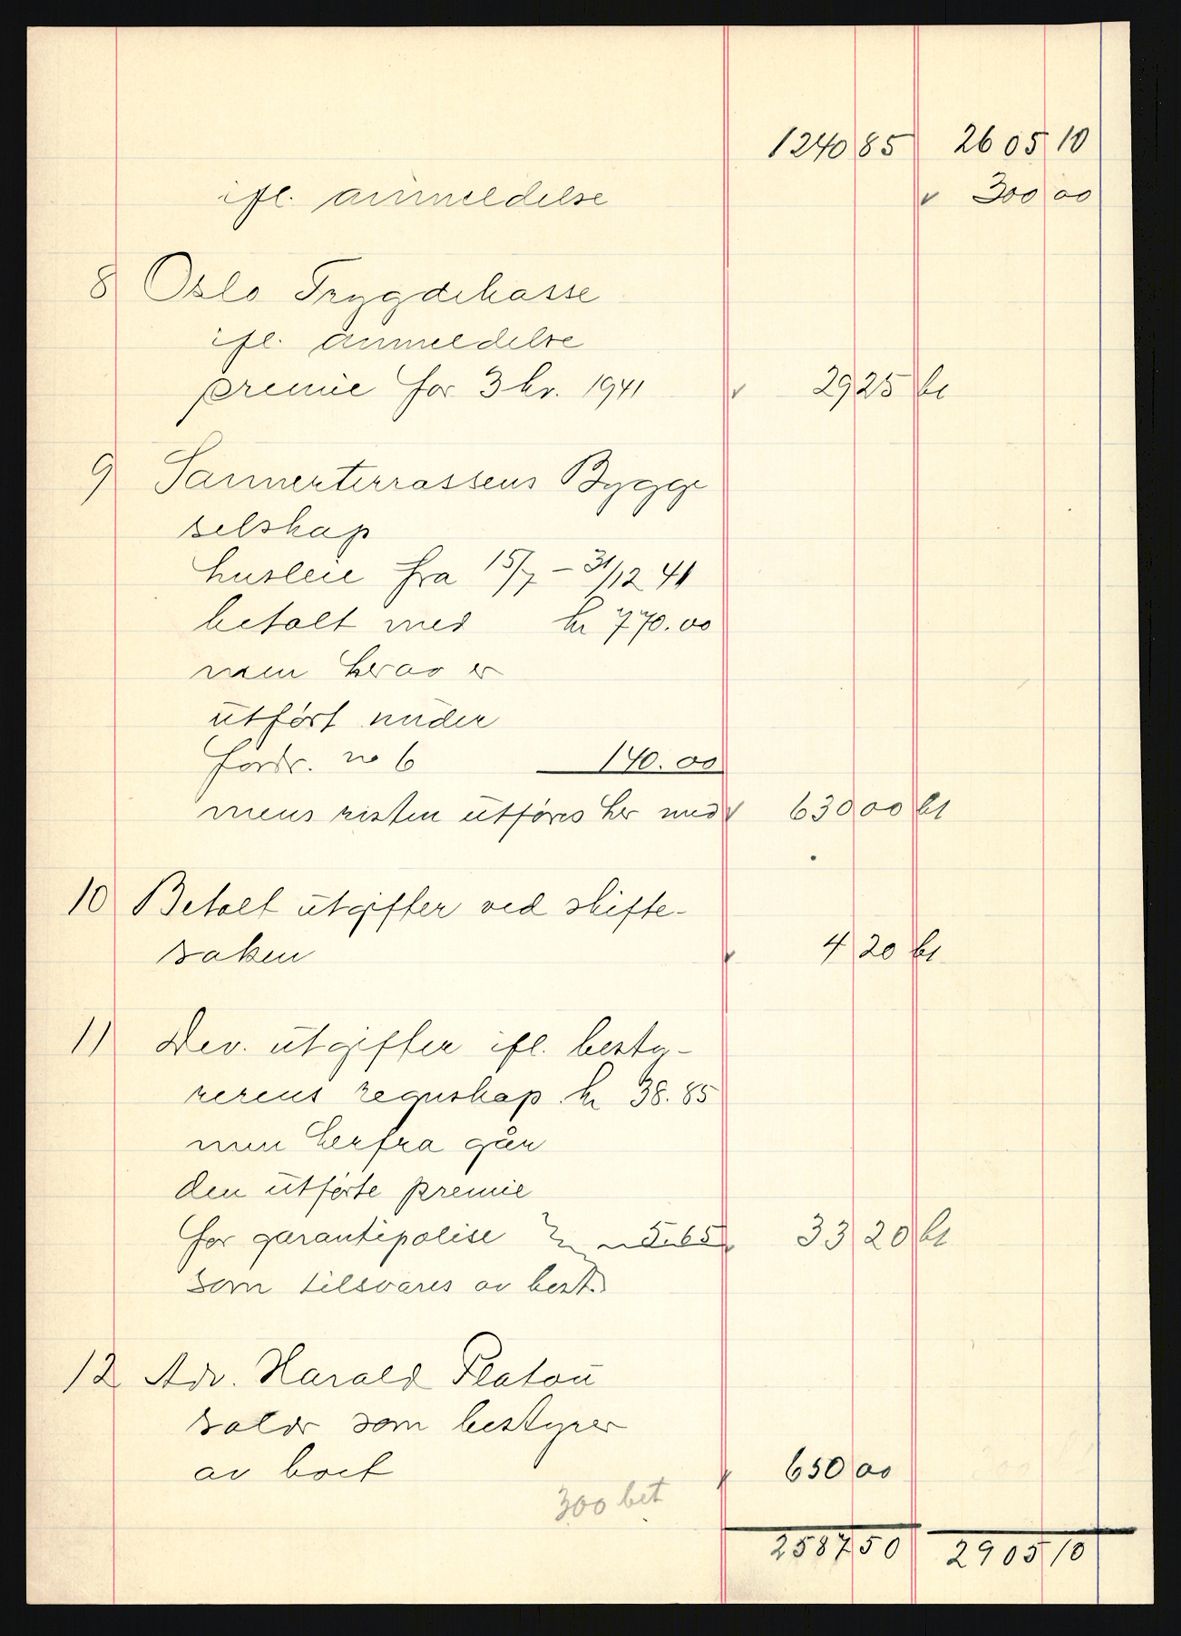 1240 85 2605 10
ifl. anmeldelse v 300 00
8 Oslo Trygdekasse
ifl. anmeldelse
premie for 3 kv. 1941 v 29 25 bt
9 Sannerterrassens Bygge
selskap
husleie fra 15/7 – 31/12 41
betalt med kr 770.00
men herav er
utført under
fordr. no 6 140.00
mens resten utføres her med v 630 00 bt
10 Betalt utgifter ved skifte-
saken v 4 20 bt
11 Div. utgifter ifl. besty-
rerens regnskap kr 38.85
men herfra går
den utførte premie
for garantipolise " 5.65 v 33 20 bt
som tilsvares av best.
12 Adv. Harald Platou
salær som bestyrer
av boet v 650 00
300 bet
2587 50 2905 10